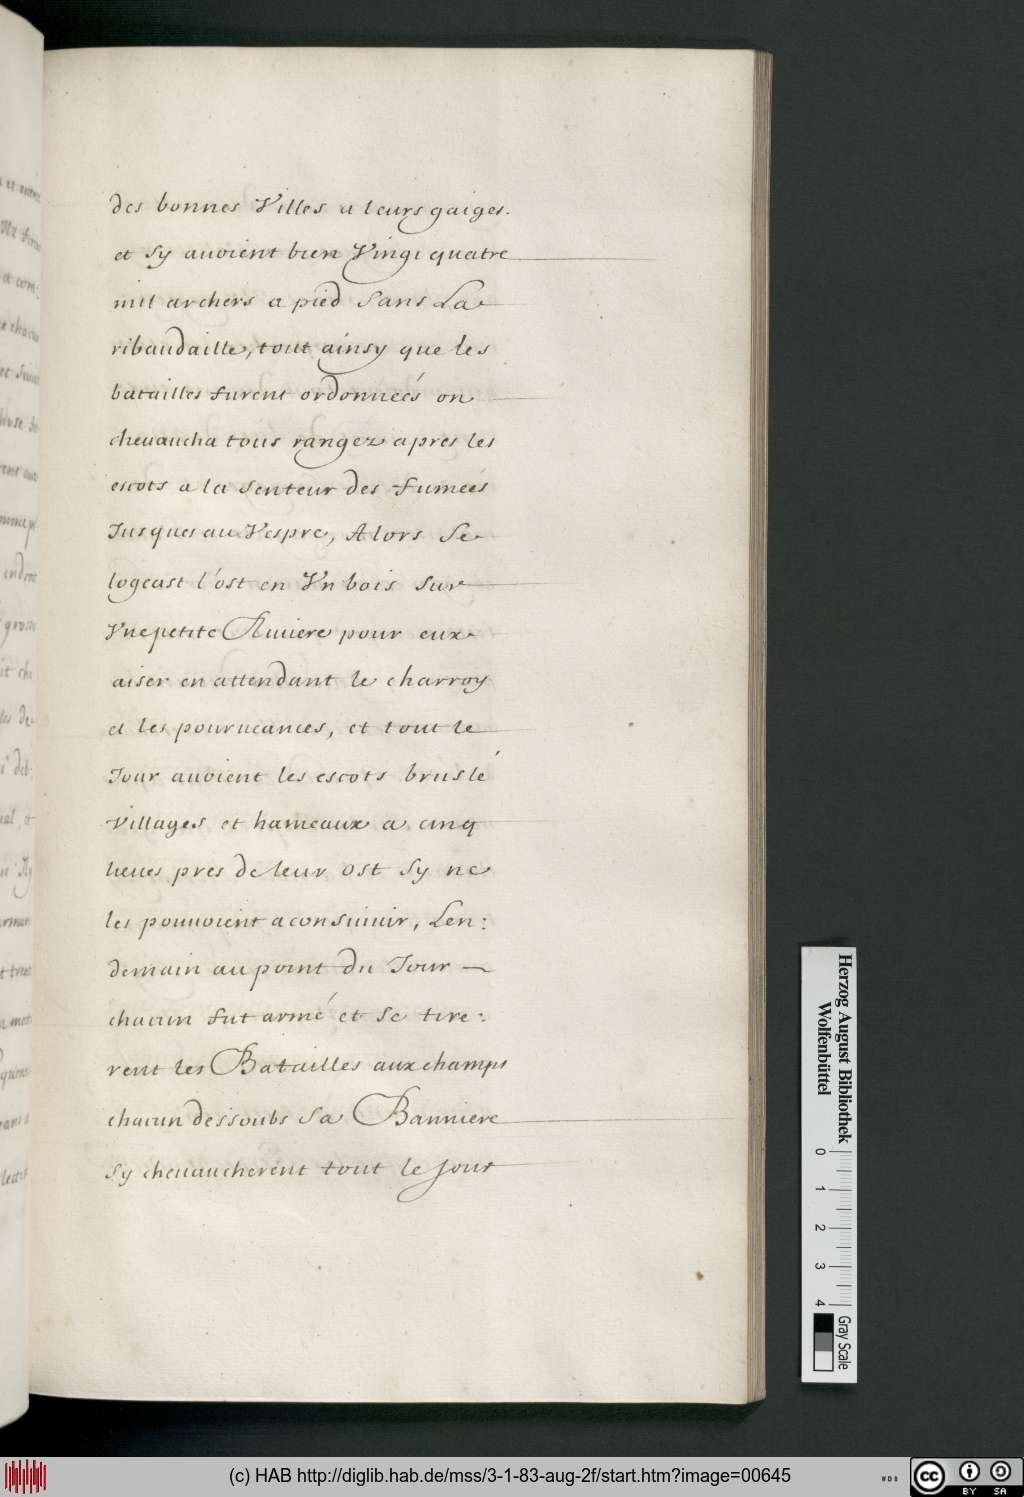 des bonnes Villes a leurs gaiges.
et sy auoient bien Vingt quatre
mil archers a pied sans La
ribaudaille, tout ainsy que les
batailles furent ordonneés on
cheuaucha tous rangez apres les
escots a la senteur des fumeés
Jusques au Vespre, Alors se
logeast l'ost en Vn bois sur
Vne petite Riuiere pour eux
aiser en attendant le charroy
et les pourueances, et tout le
Jour auoient les escots bruslé
Villages et hameaux a cinq
lieues pres de leur ost sy ne
les pouuoient aconsuiuir, Len:
demain au point du Jour —
chacun fut armé et se tire:
rent les Batailles aux champs
chacun dessoubs sa Banniere
sy cheuaucherent tout le Jour
Herzog August Bibliothek
Wolfenbüttel
0 1 2 3 4
Gray Scale
(c) HAB http://diglib.hab.de/mss/3-1-83-aug-2f/start.htm?image=00645
WDB
cc BY SA